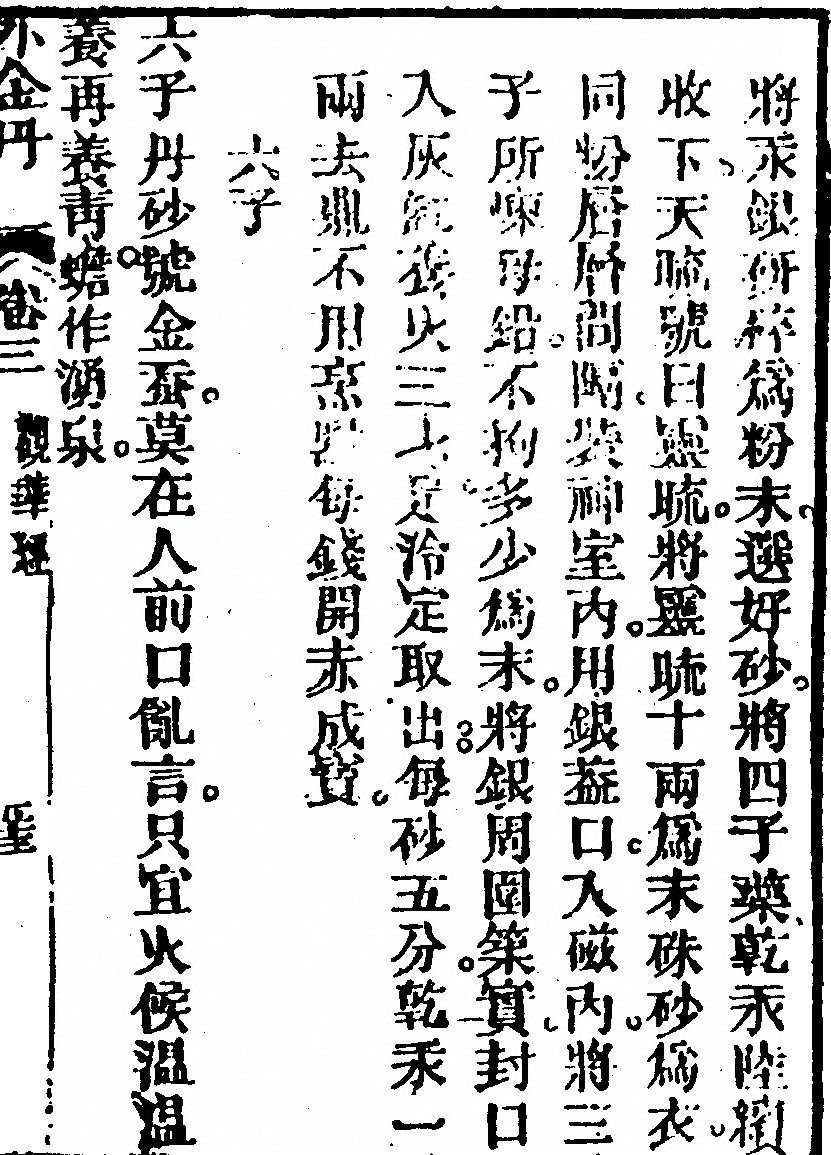 將汞銀研碎爲粉末選好砂將四子藥乾汞陸續
收下天硫號曰靈硫將靈硫十兩爲末硃砂爲衣
同粉層層間隔裝神室內用銀葢口入磁內將三
子所煉母鉛不拘多少爲末將銀周圍築實封口
入灰缸養火三七足冷定取出每砂五分乾汞一
兩去鼎不用烹點每錢開赤成寶
六子
六子丹砂號金蚕莫在人前口亂言只宜火候溫溫
養再養靑蟾作湧泉
外金丹 卷三 觀華經